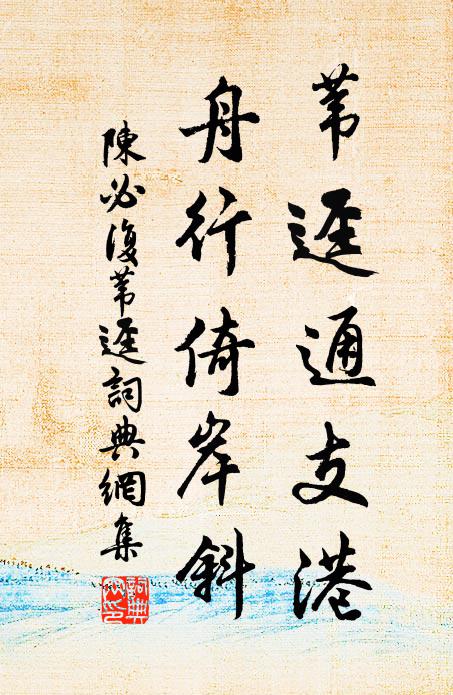 葦逕通支港
舟行倚岸斜
陳必復葦逕詞典網集